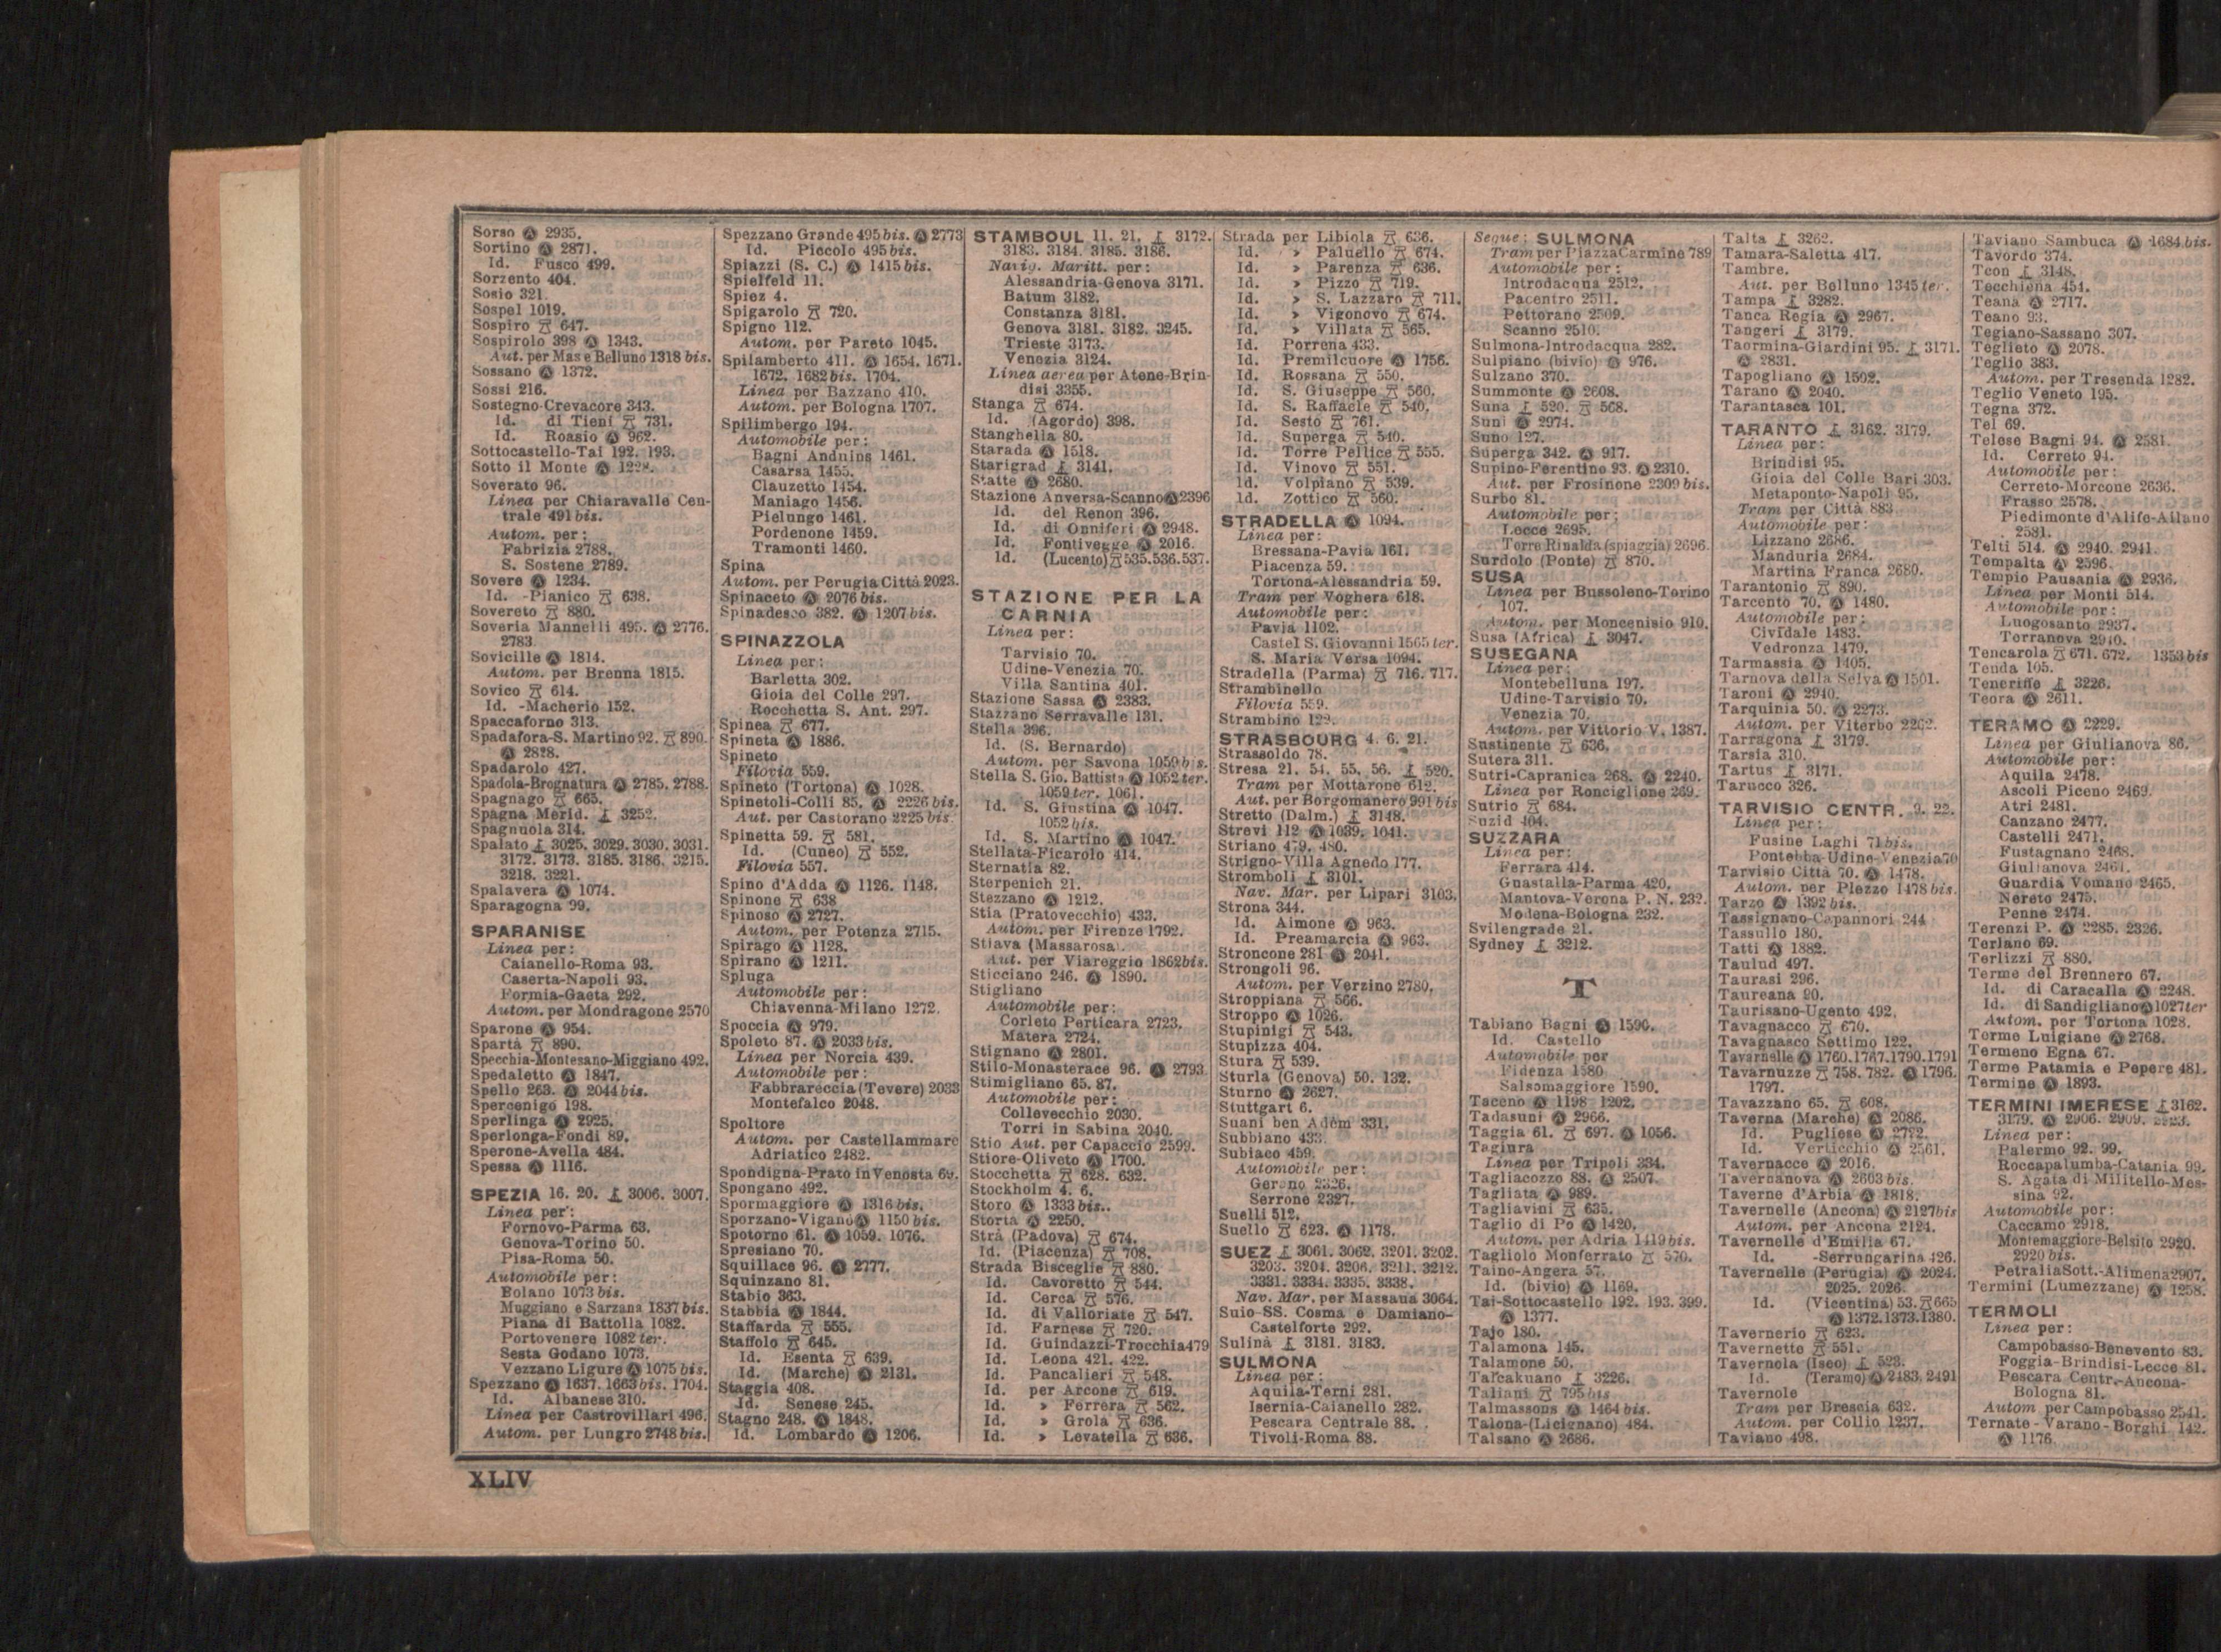 Sorso Ⓐ 2935.
Sortino Ⓐ 2871.
Id. Fusco 499.
Sorzento 404.
Sosio 321.
Sospel 1019.
Sospiro 647.
Sospirolo 398 Ⓐ 1343.
Aut. per Mas e Belluno 1318 bis.
Sossano Ⓐ 1372.
Sossi 216.
Sostegno-Crevacore 343.
Id. di Tieni 731.
Id. Roasio Ⓐ 962.
Sottocastello-Tai 192. 193.
Sotto il Monte Ⓐ
Soverato 96.
Linea per Chiaravalle Cen-
trale 491 bis.
Autom. per:
Fabrizia 2788.
S. Sostene 2789.
Sovere Ⓐ 1234.
Id. -Pianico 638.
Sovereto 880.
Soveria Mannelli 495. Ⓐ 2776.
2783.
Sovicille Ⓐ 1814.
Autom. per Brenna 1815.
Sovico 614.
Id. -Macherio 152.
Spaccaforno 313.
Spadafora-S. Martino 92. 890.
Ⓐ 2828.
Spadarolo 427.
Spadola-Brognatura Ⓐ 2785. 2788.
Spagnago 665.
Spagna Merid. 3252.
Spagnuola 314.
Spalato 3025. 3029. 3030. 3031.
3172. 3173. 3185. 3186. 3215.
3218. 3221.
Spalavera Ⓐ 1074.
Sparagogna 99.
SPARANISE
Linea per:
Caianello-Roma 93.
Caserta-Napoli 93.
Formia-Gaeta 292.
Autom. per Mondragone 2570
Sparone Ⓐ 954.
Spartà 890.
Specchia-Montesano-Miggiano 492.
Spedaletto Ⓐ 1847.
Spello 263. Ⓐ 2044 bis.
Spercenigo 198.
Sperlinga Ⓐ 2925.
Sperlonga-Fondi 89.
Sperone-Avella 484.
Spessa Ⓐ 1116.
SPEZIA 16. 20. 3006. 3007.
Linea per:
Fornovo-Parma 63.
Genova-Torino 50.
Pisa-Roma 50.
Automobile per:
Bolano 1073 bis.
Muggiano e Sarzana 1837 bis.
Piana di Battolla 1082.
Portovenere 1082 ter.
Sesta Godano 1073.
Vezzano Ligure Ⓐ 1075 bis.
Spezzano Ⓐ 1637. 1663 bis. 1704.
Id. Albanese 310.
Linea per Castrovillari 496.
Autom. per Lungro 2748 bis.
Spezzano Grande 495 bis. Ⓐ 2773
Id. Piccolo 495 bis.
Spiazzi (S. C.) Ⓐ 1415 bis.
Spielfeld 11.
Spiez 4.
Spigarolo 720.
Spigno 112.
Autom. per Pareto 1045.
Spilamberto 411. Ⓐ 1654. 1671.
1672. 1682 bis. 1704.
Linea per Bazzano 410.
Autom. per Bologna 1707.
Spilimbergo 194.
Automobile per:
Bagni Anduins 1461.
Casarsa 1455.
Clauzetto 1454.
Maniago 1456.
Pielungo 1461.
Pordenone 1459.
Tramonti 1460.
Spina
Autom. per Perugia Città 2023.
Spinaceto Ⓐ 2076 bis.
Spinadesco 382. Ⓐ 1207 bis.
SPINAZZOLA
Linea per:
Barletta 302.
Gioia del Colle 297.
Rocchetta S. Ant. 297.
Spinea 677.
Spineta Ⓐ 1886.
Spineto
Filovia 559.
Spineto (Tortona) Ⓐ 1028.
Spinetoli-Colli 85. Ⓐ 2226 bis.
Aut. per Castorano 2225 bis.
Spinetta 59. 581.
Id. (Cuneo) 552.
Filovia 557.
Spino d'Adda Ⓐ 1126. 1148.
Spinone 638
Spinoso Ⓐ 2727.
Autom. per Potenza 2715.
Spirago Ⓐ 1128.
Spirano Ⓐ 1211.
Spluga
Automobile per:
Chiavenna-Milano 1272.
Spoccia Ⓐ 979.
Spoleto 87. Ⓐ 2033 bis.
Linea per Norcia 439.
Automobile per:
Fabbrareccia (Tevere) 2033
Montefalco 2048.
Spoltore
Autom. per Castellammare
Adriatico 2482.
Spondigna-Prato in Venosta 69.
Spongano 492.
Spormaggiore Ⓐ 1316 bis.
Sporzano-Viganò Ⓐ 1150 bis.
Spotorno 61. Ⓐ 1059. 1076.
Spresiano 70.
Squillace 96. Ⓐ 2777.
Squinzano 81.
Stabio 363.
Stabbia Ⓐ 1844.
Staffarda 555.
Staffolo 645.
Id. Esenta 639.
Id. (Marche) Ⓐ 2131.
Staggia 408.
Id. Senese 245.
Stagno 248. Ⓐ 1848.
Id. Lombardo Ⓐ 1206.
STAMBOUL 11. 21. 3172.
3183. 3184. 3185. 3186.
Navig. Maritt. per:
Alessandria-Genova 3171.
Batum 3182.
Constanza 3181.
Genova 3181. 3182. 3245.
Trieste 3173.
Venezia 3124.
Linea aerea per Atene-Brin-
disi 3355.
Stanga 674.
Id. (Agordo) 398.
Stanghella 80.
Starada Ⓐ 1518.
Starigrad 3141.
Statte Ⓐ 2680.
Stazione Anversa-Scanno Ⓐ 2396
Id. del Renon 396.
Id. di Onniferi Ⓐ 2948.
Id. Fontivegge Ⓐ 2016.
Id. (Lucento) 535.536.537.
STAZIONE PER LA
CARNIA
Linea per:
Tarvisio 70.
Udine-Venezia 70.
Villa Santina 401.
Stazione Sassa Ⓐ 2383.
Stazzano Serravalle 131.
Stella 396.
Id. (S. Bernardo)
Autom. per Savona 1059 bis.
Stella S. Gio. Battista Ⓐ 1052 ter.
1059 ter. 1061.
Id. S. Giustina Ⓐ 1047.
1052 bis.
Id. S. Martino Ⓐ 1047.
Stellata-Ficarolo 414.
Sternatia 82.
Sterpenich 21.
Stezzano Ⓐ 1212.
Stia (Pratovecchio) 433.
Autom. per Firenze 1792.
Stiava (Massarosa).
Aut. per Viareggio 1862 bis.
Sticciano 246. Ⓐ 1890.
Stigliano
Automobile per:
Corleto Perticara 2723.
Matera 2724.
Stignano Ⓐ 2801.
Stilo-Monasterace 96. Ⓐ 2793
Stimigliano 65. 87.
Automobile per:
Collevecchio 2030.
Torri in Sabina 2040.
Stio Aut. per Capaccio 2599.
Stiore-Oliveto Ⓐ 1700.
Stocchetta 628. 632.
Stockholm 4. 6.
Storo Ⓐ 1333 bis..
Storta Ⓐ 2250.
Strà (Padova) 674.
Id. (Piacenza) 708.
Strada Bisceglie 880.
Id. Cavoretto 544.
Id. Cerca 576.
Id. di Valloriate 547.
Id. Farnese 720.
Id. Guindazzi-Trocchia 479
Id. Leona 421. 422.
Id. Pancalieri 548.
Id. per Arcone 619.
Id. » Ferrera 562.
Id. » Grola 636.
Id. » Levatella 636.
Strada per Libiola 636.
Id. » Paluello 674.
Id. » Parenza 636.
Id. » Pizzo 719.
Id. » S. Lazzaro 711.
Id. » Vigonovo 674.
Id. » Villata 565.
Id. Porrena 433.
Id. Premilcuore Ⓐ 1756.
Id. Rossana 550.
Id. S. Giuseppe 560.
Id. S. Raffaele 540.
Id. Sesto 761.
Id. Superga 540.
Id. Torre Pellice 555.
Id. Vinovo 551.
Id. Volpiano 539.
Id. Zottico 560.
STRADELLA Ⓐ 1094.
Linea per:
Bressana-Pavia 161.
Piacenza 59.
Tortona-Alessandria 59.
Tram per Voghera 618.
Automobile per:
Pavia 1102.
Castel S. Giovanni 1565 ter.
S. Maria Versa 1094.
Stradella (Parma) 716. 717.
Strambinello
Filovia 559.
Strambino 122.
STRASBOURG 4. 6. 21.
Strassoldo 78.
Stresa 21. 54. 55. 56. 520.
Tram per Mottarone 612.
Aut. per Borgomanero 991 bis
Stretto (Dalm.) 3148.
Strevi 112 Ⓐ 1039. 1041.
Striano 479. 480.
Strigno-Villa Agnedo 177.
Stromboli 3101.
Nav. Mar. per Lipari 3103.
Strona 344.
Id. Aimone Ⓐ 963.
Id. Preamarcia Ⓐ 963.
Stroncone 281 Ⓐ 2041.
Strongoli 96.
Autom. per Verzino 2780.
Stroppiana 566.
Stroppo Ⓐ 1026.
Stupinigi 543.
Stupizza 404.
Stura 539.
Sturla (Genova) 50. 132.
Sturno Ⓐ 2627.
Stuttgart 6.
Suani ben Adem 331.
Subbiano 433.
Subiaco 459.
Automobile per:
Gerano 2326.
Serrone 2327.
Suelli 512.
Suello 623. Ⓐ 1178.
SUEZ 3061. 3062. 3201. 3202.
3203. 3204. 3206. 3211. 3212.
3331. 3334. 3335. 3338.
Nav. Mar. per Massaua 3064.
Suio-SS. Cosma e Damiano-
Castelforte 292.
Sulinà 3181. 3183.
SULMONA
Linea per:
Aquila-Terni 281.
Isernia-Caianello 282.
Pescara Centrale 88.
Tivoli-Roma 88.
Segue: SULMONA
Tram per Piazza Carmine 789
Automobile per:
Introdacqua 2512.
Pacentro 2511.
Pettorano 2509.
Scanno 2510.
Sulmona-Introdacqua 282.
Sulpiano (bivio) Ⓐ 976.
Sulzano 370.
Summonte Ⓐ 2608.
Suna 520. 568.
Suni Ⓐ 2974.
Suno 127.
Superga 342. Ⓐ 917.
Supino-Ferentino 93. Ⓐ 2310.
Aut. per Frosinone 2309 bis.
Surbo 81.
Automobile per:
Lecce 2695.
Torre Rinalda (spiaggia) 2696.
Surdolo (Ponte) 870.
SUSA
Linea per Bussoleno-Torino
107.
Autom. per Moncenisio 910.
Susa (Africa) 3047.
SUSEGANA
Linea per:
Montebelluna 197.
Udine-Tarvisio 70.
Venezia 70.
Autom. per Vittorio V. 1387.
Sustinente 636.
Sutera 311.
Sutri-Capranica 268. Ⓐ 2240.
Linea per Ronciglione 269.
Sutrio 684.
Suzid 404.
SUZZARA
Linea per:
Ferrara 414.
Guastalla-Parma 420.
Mantova-Verona P. N. 232.
Modena-Bologna 232.
Svilengrade 21.
Sydney 3212.
T
Tabiano Bagni Ⓐ 1590.
Id. Castello
Automobile per
Fidenza 1580
Salsomaggiore 1590.
Taceno Ⓐ 1198 1202.
Tadasuni Ⓐ 2966.
Taggia 61. 697. Ⓐ 1056.
Tagiura
Linea per Tripoli 334.
Tagliacozzo 88. Ⓐ 2507.
Tagliata Ⓐ 989.
Tagliavini 635.
Taglio di Po Ⓐ 1420.
Autom. per Adria 1419 bis.
Tagliolo Monferrato 570.
Taino-Angera 57.
Id. (bivio) Ⓐ 1169.
Tai-Sottocastello 192. 193. 399.
Ⓐ 1377.
Tajo 180.
Talamona 145.
Talamone 50.
Talcahuano 3226.
Taliani 795 bis
Talmassons Ⓐ 1464 bis.
Talona-(Licignano) 484.
Talsano Ⓐ 2686.
Talta 3262.
Tamara-Saletta 417.
Tambre.
Aut. per Belluno 1345 ter.
Tampa 3282.
Tanca Regia Ⓐ 2967.
Tangeri 3179.
Taormina-Giardini 95. 3171.
Ⓐ 2831.
Tapogliano Ⓐ 1502.
Tarano Ⓐ 2040.
Tarantasca 101.
TARANTO 3162. 3179.
Linea per:
Brindisi 95.
Gioia del Colle Bari 303.
Metaponto-Napoli 95.
Tram per Città 883
Automobile per:
Lizzano 2686.
Manduria 2684.
Martina Franca 2680.
Tarantonio 890.
Tarcento 70. Ⓐ 1480.
Automobile per:
Cividale 1483.
Vedronza 1479.
Tarmassia Ⓐ 1405.
Tarnova della Selva Ⓐ 1501.
Taroni Ⓐ 2940.
Tarquinia 50. Ⓐ 2273.
Autom. per Viterbo 2262.
Tarragona 3179.
Tarsia 310.
Tartus 3171.
Tarucco 326.
TARVISIO CENTR. 9. 22.
Linea per:
Fusine Laghi 71 bis.
Pontebba-Udine-Venezia 70
Tarvisio Città 70. Ⓐ 1478.
Autom. per Plezzo 1478 bis.
Tarzo Ⓐ 1392 bis.
Tassignano-Capannori 244
Tassullo 180.
Tatti Ⓐ 1882.
Taulud 497.
Taurasi 296.
Taureana 90.
Taurisano-Ugento 492.
Tavagnacco 670.
Tavagnasco Settimo 122.
Tavarnelle Ⓐ 1760.1767.1790.1791
Tavarnuzze 758. 782. Ⓐ 1796.
1797.
Tavazzano 65. 608.
Taverna (Marche) Ⓐ 2086.
Id. Pugliese Ⓐ 2722.
Id. Verticchio Ⓐ 2561.
Tavernacce Ⓐ 2016.
Tavernanova Ⓐ 2603 bis.
Taverne d'Arbia Ⓐ 1818.
Tavernelle (Ancona) Ⓐ 2127 bis
Autom. per Ancona 2124.
Tavernelle d'Emilia 67.
Id. -Serrungarina 426.
Tavernelle (Perugia) Ⓐ 2024.
2025. 2026.
Id. (Vicentina) 53. 665
Ⓐ 1372.1373.1380.
Tavernerio 623.
Tavernette 551.
Tavernola (Iseo) 523.
Id. (Teramo) Ⓐ 2483. 2491
Tavernole
Tram per Brescia 632.
Autom. per Collio 1237.
Taviano 498.
Taviano Sambuca Ⓐ 1684 bis.
Tavordo 374.
Tcon 3148.
Tecchiena 454.
Teana Ⓐ 2717.
Teano 93.
Tegiano-Sassano 307.
Teglieto Ⓐ 2078.
Teglio 383.
Autom. per Tresenda 1282.
Teglio Veneto 195.
Tegna 372.
Tel 69.
Telese Bagni 94. Ⓐ 2581.
Id. Cerreto 94.
Automobile per:
Cerreto-Morcone 2636.
Frasso 2578.
Piedimonte d'Alife-Ailano
2581.
Telti 514. Ⓐ 2940. 2941.
Tempalta Ⓐ 2596.
Tempio Pausania Ⓐ 2936.
Linea per Monti 514.
Automobile per:
Luogosanto 2937.
Terranova 2940.
Tencarola 671. 672. 1353 bis
Tenda 105.
Teneriffe 3226.
Teora Ⓐ 2611.
TERAMO Ⓐ 2229.
Linea per Giulianova 86.
Automobile per:
Aquila 2478.
Ascoli Piceno 2469.
Atri 2481.
Canzano 2477.
Castelli 2471.
Fustagnano 2468.
Giulianova 2461.
Guardia Vomano 2465.
Nereto 2475.
Penne 2474.
Terenzi P. Ⓐ 2285. 2326.
Terlano 69.
Terlizzi 880.
Terme del Brennero 67.
Id. di Caracalla Ⓐ 2248.
Id. di Sandigliano Ⓐ 1027 ter
Autom. per Tortona 1028.
Terme Luigiane Ⓐ 2768.
Termeno Egna 67.
Terme Patamia e Pepere 481.
Termine Ⓐ 1893.
TERMINI IMERESE 3162.
3179. Ⓐ 2906. 2909. 2923.
Linea per:
Palermo 92. 99.
Roccapalumba-Catania 99.
S. Agata di Militello-Mes-
sina 92.
Automobile per:
Caccamo 2918.
Montemaggiore-Belsito 2920.
2920 bis.
Petralia Sott.-Alimena 2907.
Termini (Lumezzane) Ⓐ 1258.
TERMOLI
Linea per:
Campobasso-Benevento 83.
Foggia-Brindisi-Lecce 81.
Pescara Centr.-Ancona-
Bologna 81.
Autom per Campobasso 2541.
Ternate - Varano - Borghi 142.
Ⓐ 1176.
XLIV